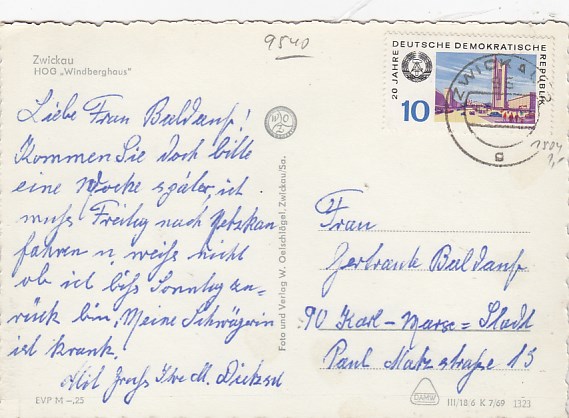 9540
Zwickau
HOG „Windberghaus“
20 JAHRE DEUTSCHE DEMOKRATISCHE REPUBLIK
10
ZWICKAU 2
Liebe Frau Baldauf!
Kommen Sie doch bitte
eine Woche später, ich
muss Freitag nach
fahren u. weiss nicht
ob ich biss Sonntag zu-
rück bin. Meine Schwägerin
ist krank!
Mit Gruß Ihre M.
Foto und Verlag W. Oelschlägel, Zwickau/Sa.
Frau
Baldauf
90 Karl-Marx=Stadt
Paul Matzstraße 13
EVP M –,25
DAMW
III/18/6 K 7/69 1323